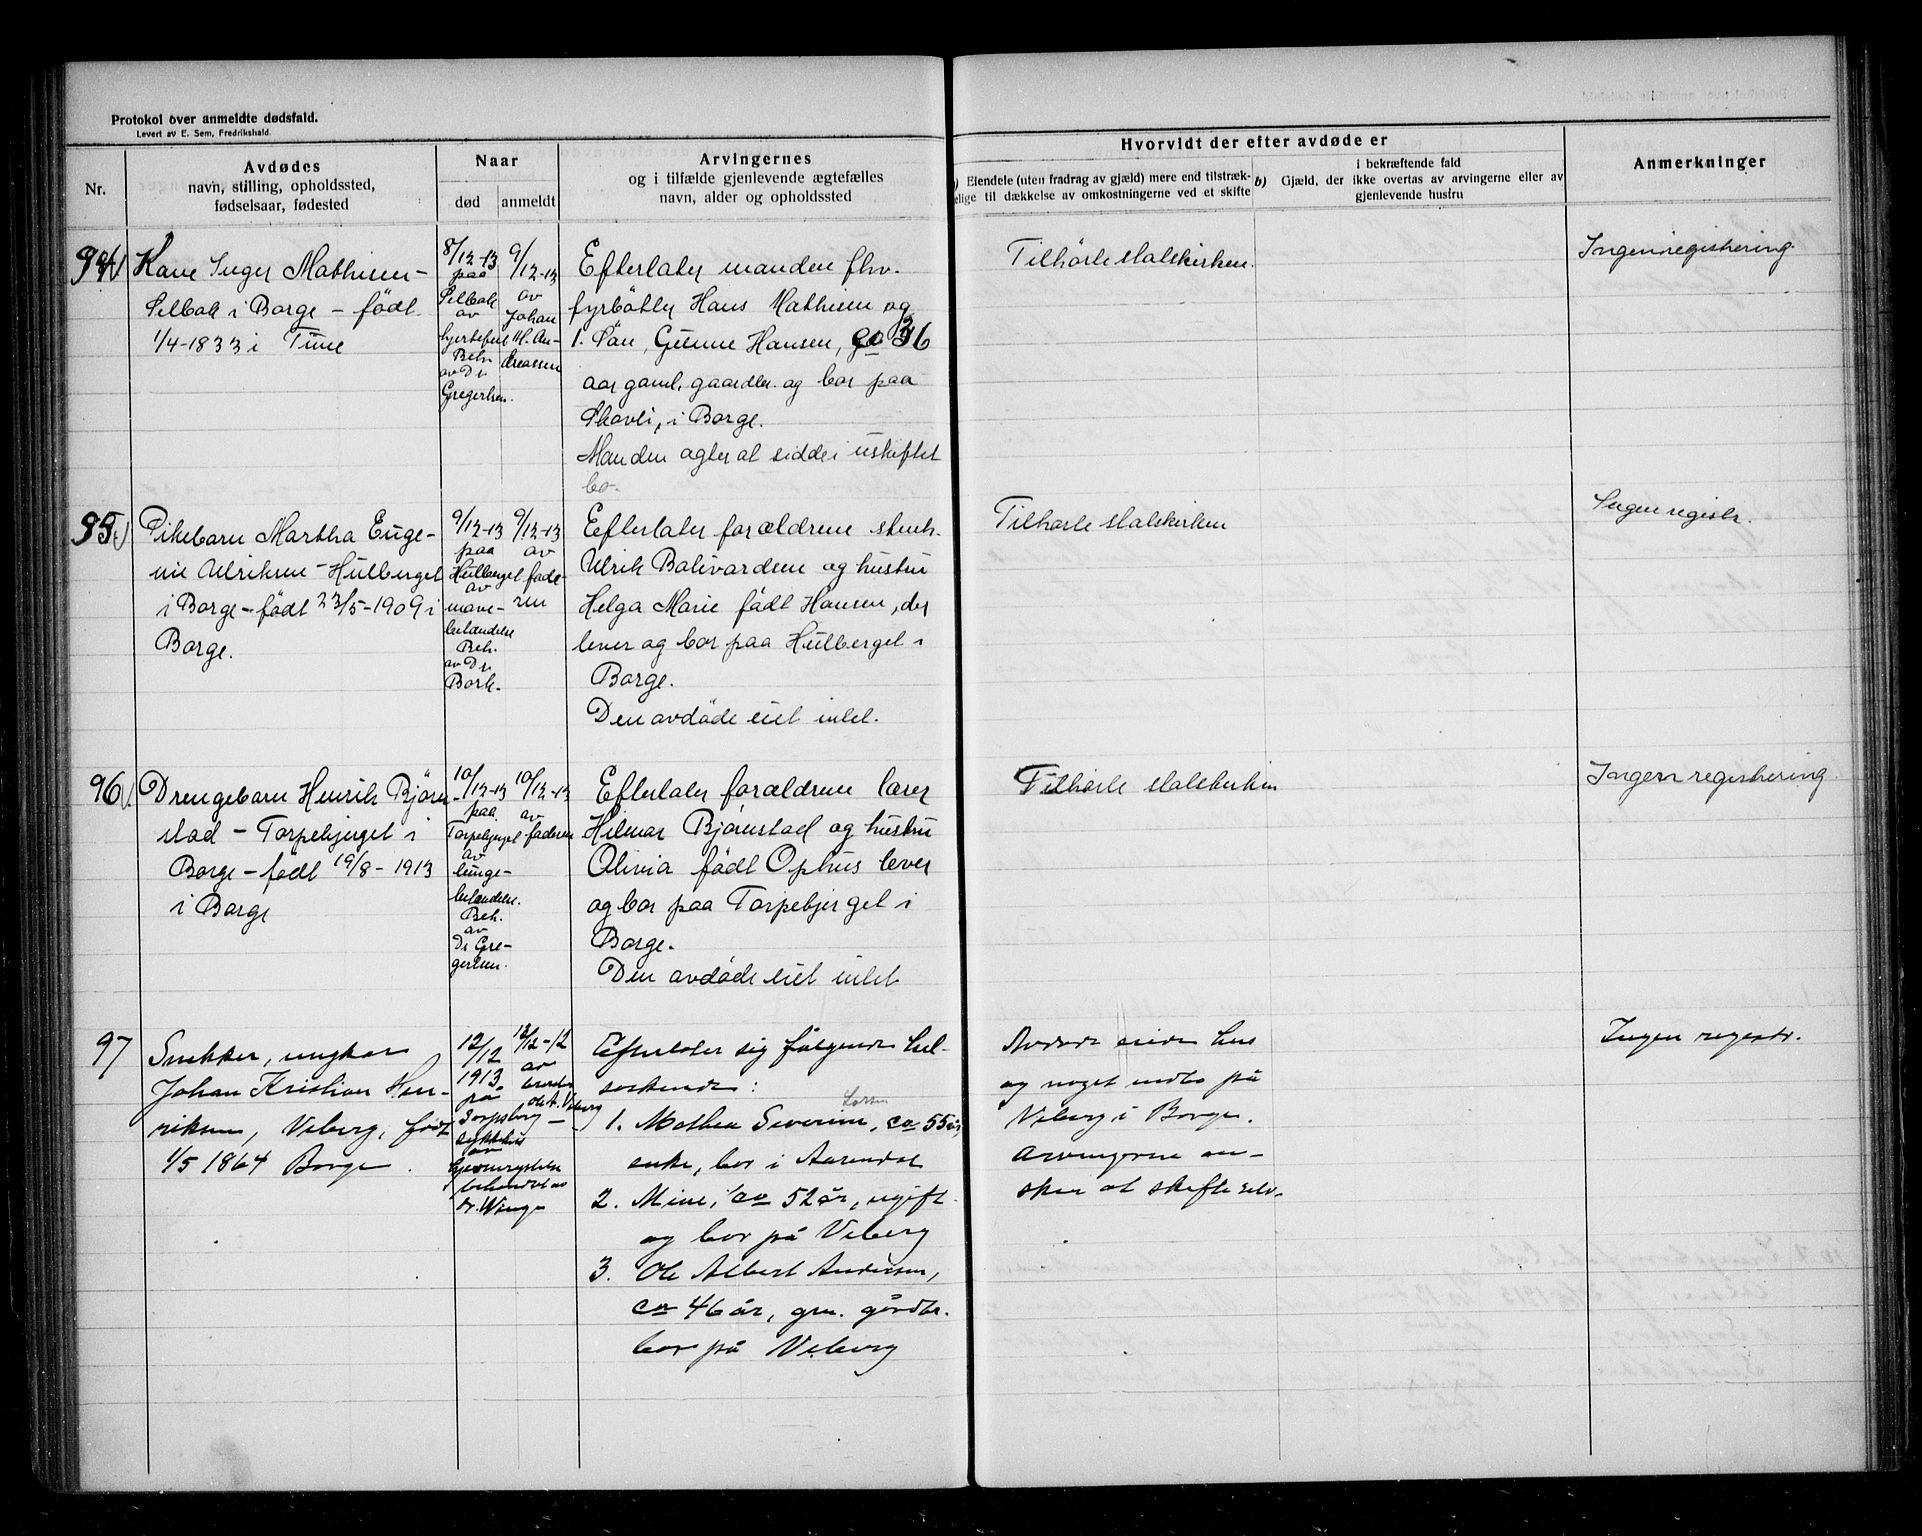 Protokol over anmeldte dødsfald.
Levert av E. Sem, Fredrikshald.
Nr.
Avdødes
navn, stilling, opholdssted,
fødselsaar, fødested
Naar
død
anmeldt
Arvingernes
og i tilfælde gjenlevende ægtefælles
navn, alder og opholdssted
Hvorvidt der efter avdøde er
Eiendele (uten fradrag av gjæld) mere end tilstræk-
elige til dækkelse av omkostningerne ved et skifte
b)
i bekræftende fald
Gjæld, der ikke overtas av arvingerne eller av
gjenlevende hustru
Anmerkninger
94
Kone Inger Mathisen -
Selbak i Borge - født
1/4-1833 i Tune
8/12-13
paa
Selbak
av
hjertefeil
Beh.
av Dr.
Gregertsen.
9/12-13
av
Johan
M. An-
dreassen
Efterlater manden fhv.
fyrbøter Hans Mathisen og
1. Søn, Gunne Hansen, 36
aar gaml. gaardbr. og bor paa
Skovli, i Borge.
Manden agter at sidde i uskiftet
bo.
Tilhørte statskirken.
Ingen registrering.
95
Pikebarn Martha Euge-
nie Ulriksen - Hulberget
i Borge - født 23/5-1909 i
Borge.
9/12-13
paa
Hulberget
av
mave-
betændelse
Beh.
av Dr.
Bork.
9/12-13
av
fade-
ren
Efterlater forældrene stenh.
Ulrik Bolivardsen og hustru
Helga Marie født Hansen, der
lever og bor paa Hulberget i
Borge.
Den avdøde eiet intet.
Tilhørte statskirken
Ingen registr.
96
Drengebarn Henrik Bjørn-
stad - Torpebjerget i
Borge - født 19/8 - 1913
i Borge
10/12-13
paa
Torpebjerget
av
lunge-
betændelse.
Beh.
av
Dr Gre-
gertsen.
10/12-13
av
faderen
Efterlater forældrene lærer
Hilmar Bjørnstad og hustru
Olivia født Ophus lever
og bor paa Torpebjerget i
Borge.
Den avdøde eiet intet
Tilhørte statskirken
Ingen registrering
97
Snekker, ungkar
Johan Kristian Hen-
riksen, Viberg, født
1/5 1864 Borge.
12/12
1913
på
Sarpsborg
sykehus
av
behandlet av
dr. Winge
12/12-12
av
broder
Ole A. Viberg
Efterlater sig følgende hel-
søskende:
Larsen
1. Mathea Severine, ca 55 år,
enke, bor i Aarendal
2. Mine, ca 52 år, ugift
og bor på Viberg
3. Ole Albert Andersen,
ca 46 år, grn. gårdbr.
bor på Viberg
Avdøde eiede hus
og noget indbo på
Viberg i Borge.
Arvingerne øn-
sker at skifte selv.
Ingen registr.